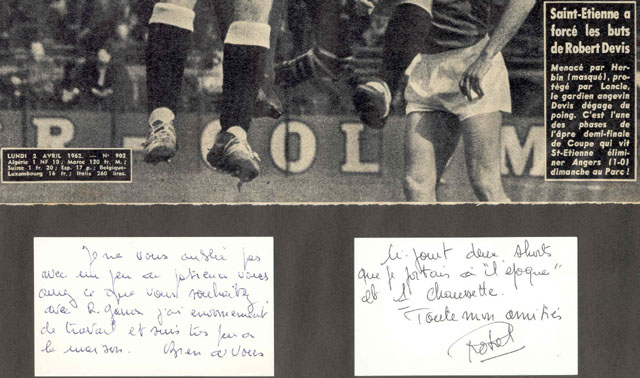 Saint-Etienne a
forcé les buts
de Robert Devis
Menacé par Her-
bin (masqué), pro-
tégé par Loncle,
le gardien angevin
Devis dégage du
poing. C'est l'une
des phases de
l'âpre demi-finale
de Coupe qui vit
St-Etienne élimi-
ner Angers (1-0)
dimanche au Parc !
R - COL M
LUNDI 2 AVRIL 1962. — N° 902
Algérie 1 NF 10 ; Maroc 120 fr. M. ;
Suisse 1 fr. 20 ; Esp. 17 p. ; Belgique-
Luxembourg 16 fr. ; Italie 260 lires.
Je ne vous oublie pas
avec un peu de patience vous
aurez ce que vous souhaitez
avec R. j'ai énormément
de travail et suis très peu à
la maison. Bien à vous
Ci-joint deux shorts
que je portais à "l'époque"
et 1 Chaussette.
Toute mon amitiés